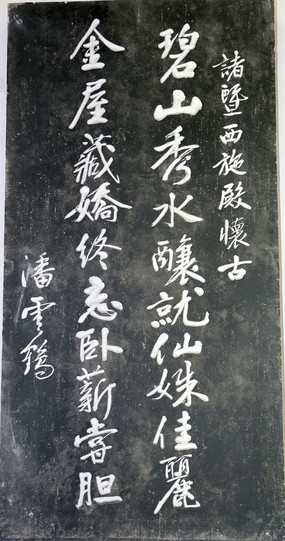 諸暨西施殿懷古
碧山秀水釀就仙姝佳麗
金屋藏嬌終忘卧薪嘗胆
潘雲鶴